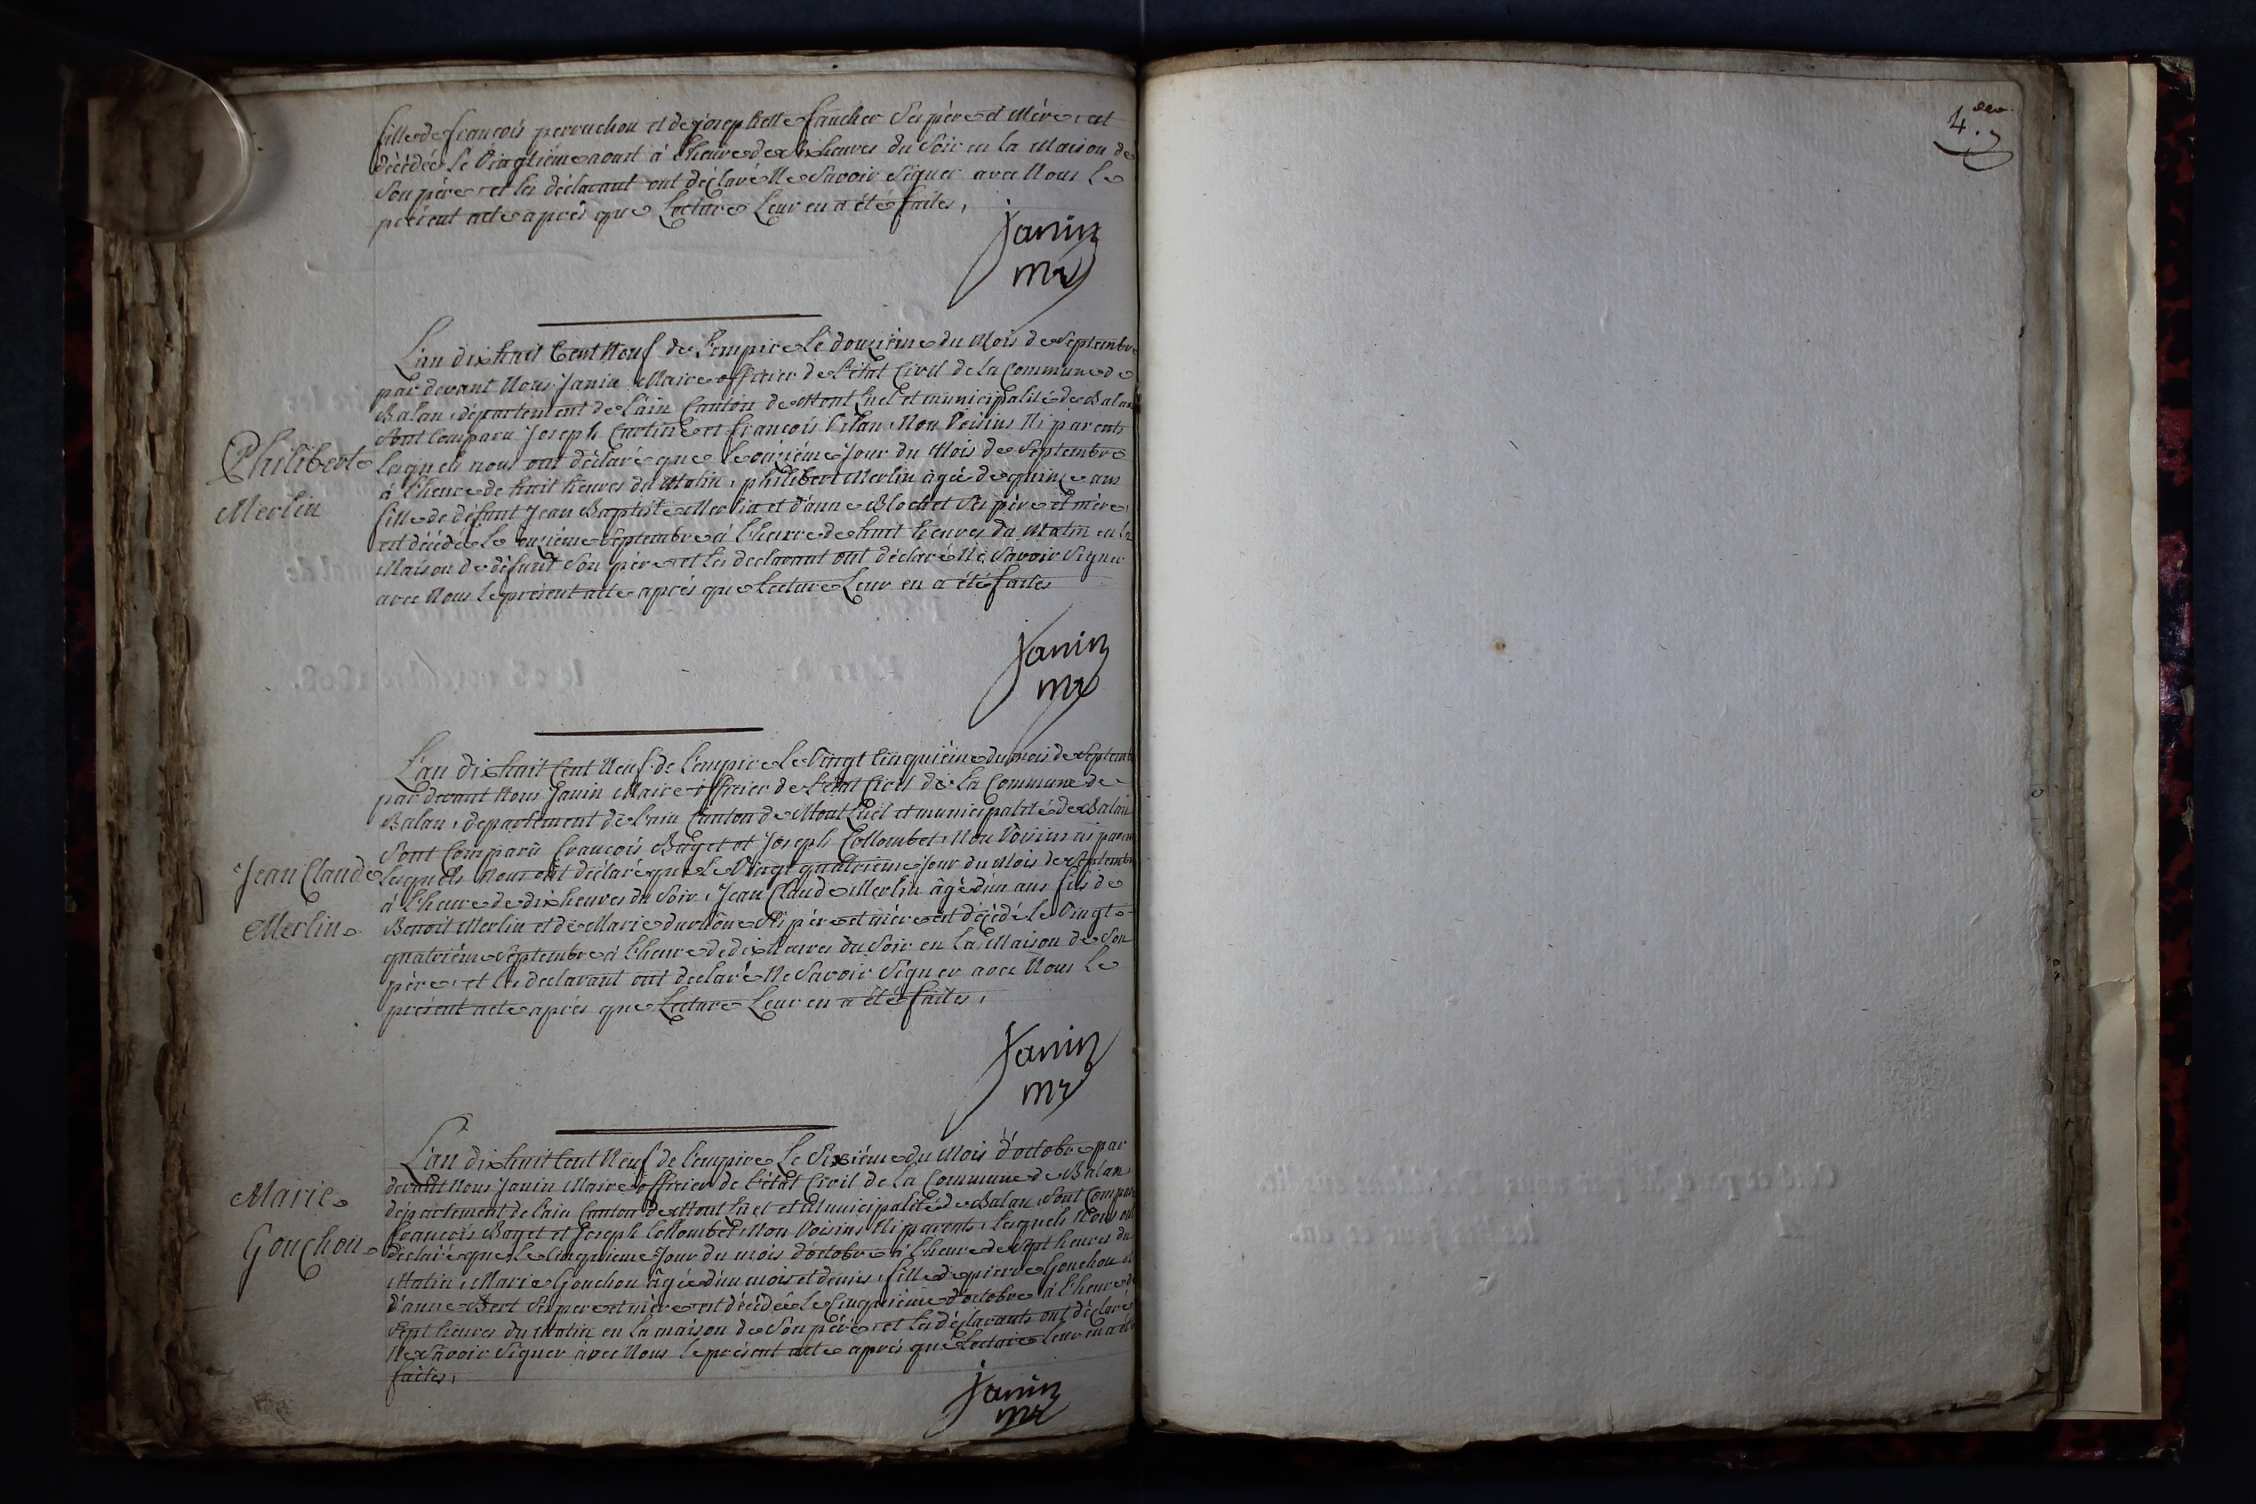 fille de françois perruchon et de josephette faucher Ses père et Mère, est
décédée le Vingtième aoust à l'heure de dix heures du Soir en la Maison de
Son père et les déclarant ont déclaré Ne Savoir Signer avec Nous Le
présent acte après que Lecture Leur en a été faites,
janin
mre
L'an dix huit Cent Neuf de l'empire Le douzième du Mois de Septembre
par devant Nous Janin Maire officier de l'état Civil de la Commune de
Balan, departement de l'ain Canton de Mont Luel et municipalité de Balan
Sont Comparu Joseph Cartine et françois Vilan Non Voisins Ni parents
Philiberte
Merlin
Lesquels nous ont déclaré que Le onzième Jour du Mois de Septembre
à l'heure de huit heures du Matin, philibert Merlin âgée de quinze ans
fille de défunt Jean Baptiste Merlin et d'anne Blochet Ses père et mère,
est décédée Le onzième Septembre à l'heure de huit heures du Matin en la
Maison de défunt Son père et les declarant ont déclaré Ne Savoir Signer
avec Nous le présent acte après que Lecture Leur en a été faites
janin
mre
L'an dix huit Cent Neuf de l'empire Le Vingt Cinquième du mois de Septembre
par devant Nous Janin Maire officier de l'état Civil de La Commune de
Balan, departement de l'ain Canton de Mont Luel et municipalité de Balan
Sont Comparû françois Baget et Joseph Collombet, Non Voisins ni parents
Jean Claude
Merlin
Lesquels Nous ont déclaré que Le Vingt quatrième Jour du Mois de Septembre
à l'heure de dix heures du Soir, Jean Claude Merlin âgé d'un ans fils de
Benoit Merlin et de Marie Ses père et mère est décédé Le Vingt
quatrième Septembre à l'heure de dix heures du Soir en La Maison de Son
père, et les declarant ont declaré Ne Savoir Signer avec Nous Le
présent acte après que Lecture Leur en a été faites,
janin
mre
L'an dix huit Cent Neuf de l'empire Le Sixième du Mois d'octobre par
devant Nous Janin Maire officier de l'état Civil de La Commune de Balan
departement de l'ain Canton de Mont Luel et Municipalité de Balan, Sont Comparu
Marie
Gonchon
françois Baget et Joseph Collombet, Non Voisins Ni parents, Lesquels Nous ont
déclaré que le Cinquième Jour du mois d'octobre à l'heure de Sept heures du
Matin, Marie Gonchon âgée d'un mois et demis, fille de pierre Gonchon et
d'anne Bert Ses pere et mère est décédée Le Cinquième d'octobre à l'heure de
Sept heures du Matin en La maison de Son père, et les déclarants ont déclaré
Ne Savoir Signer avec Nous le présent acte après que Lecture Leur en a été
faites,
janin
mre
4.